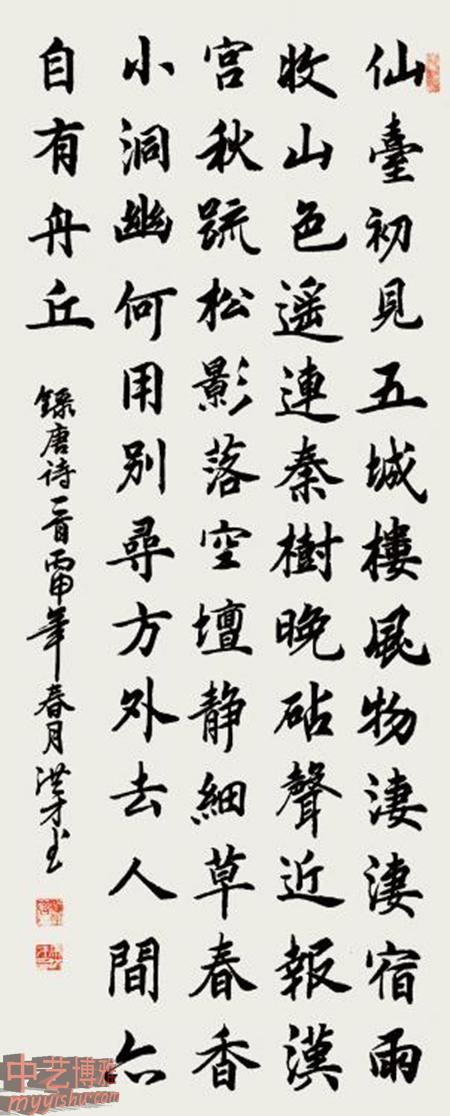 仙臺初見五城樓風物淒淒宿雨
收山色遥連秦樹晚砧聲近報漢
宮秋疏松影落空壇静細草春香
小洞幽何用別尋方外去人間亦
自有丹丘
錄唐诗一首丙申年春月洪才书
中艺博雅
myyishu.com